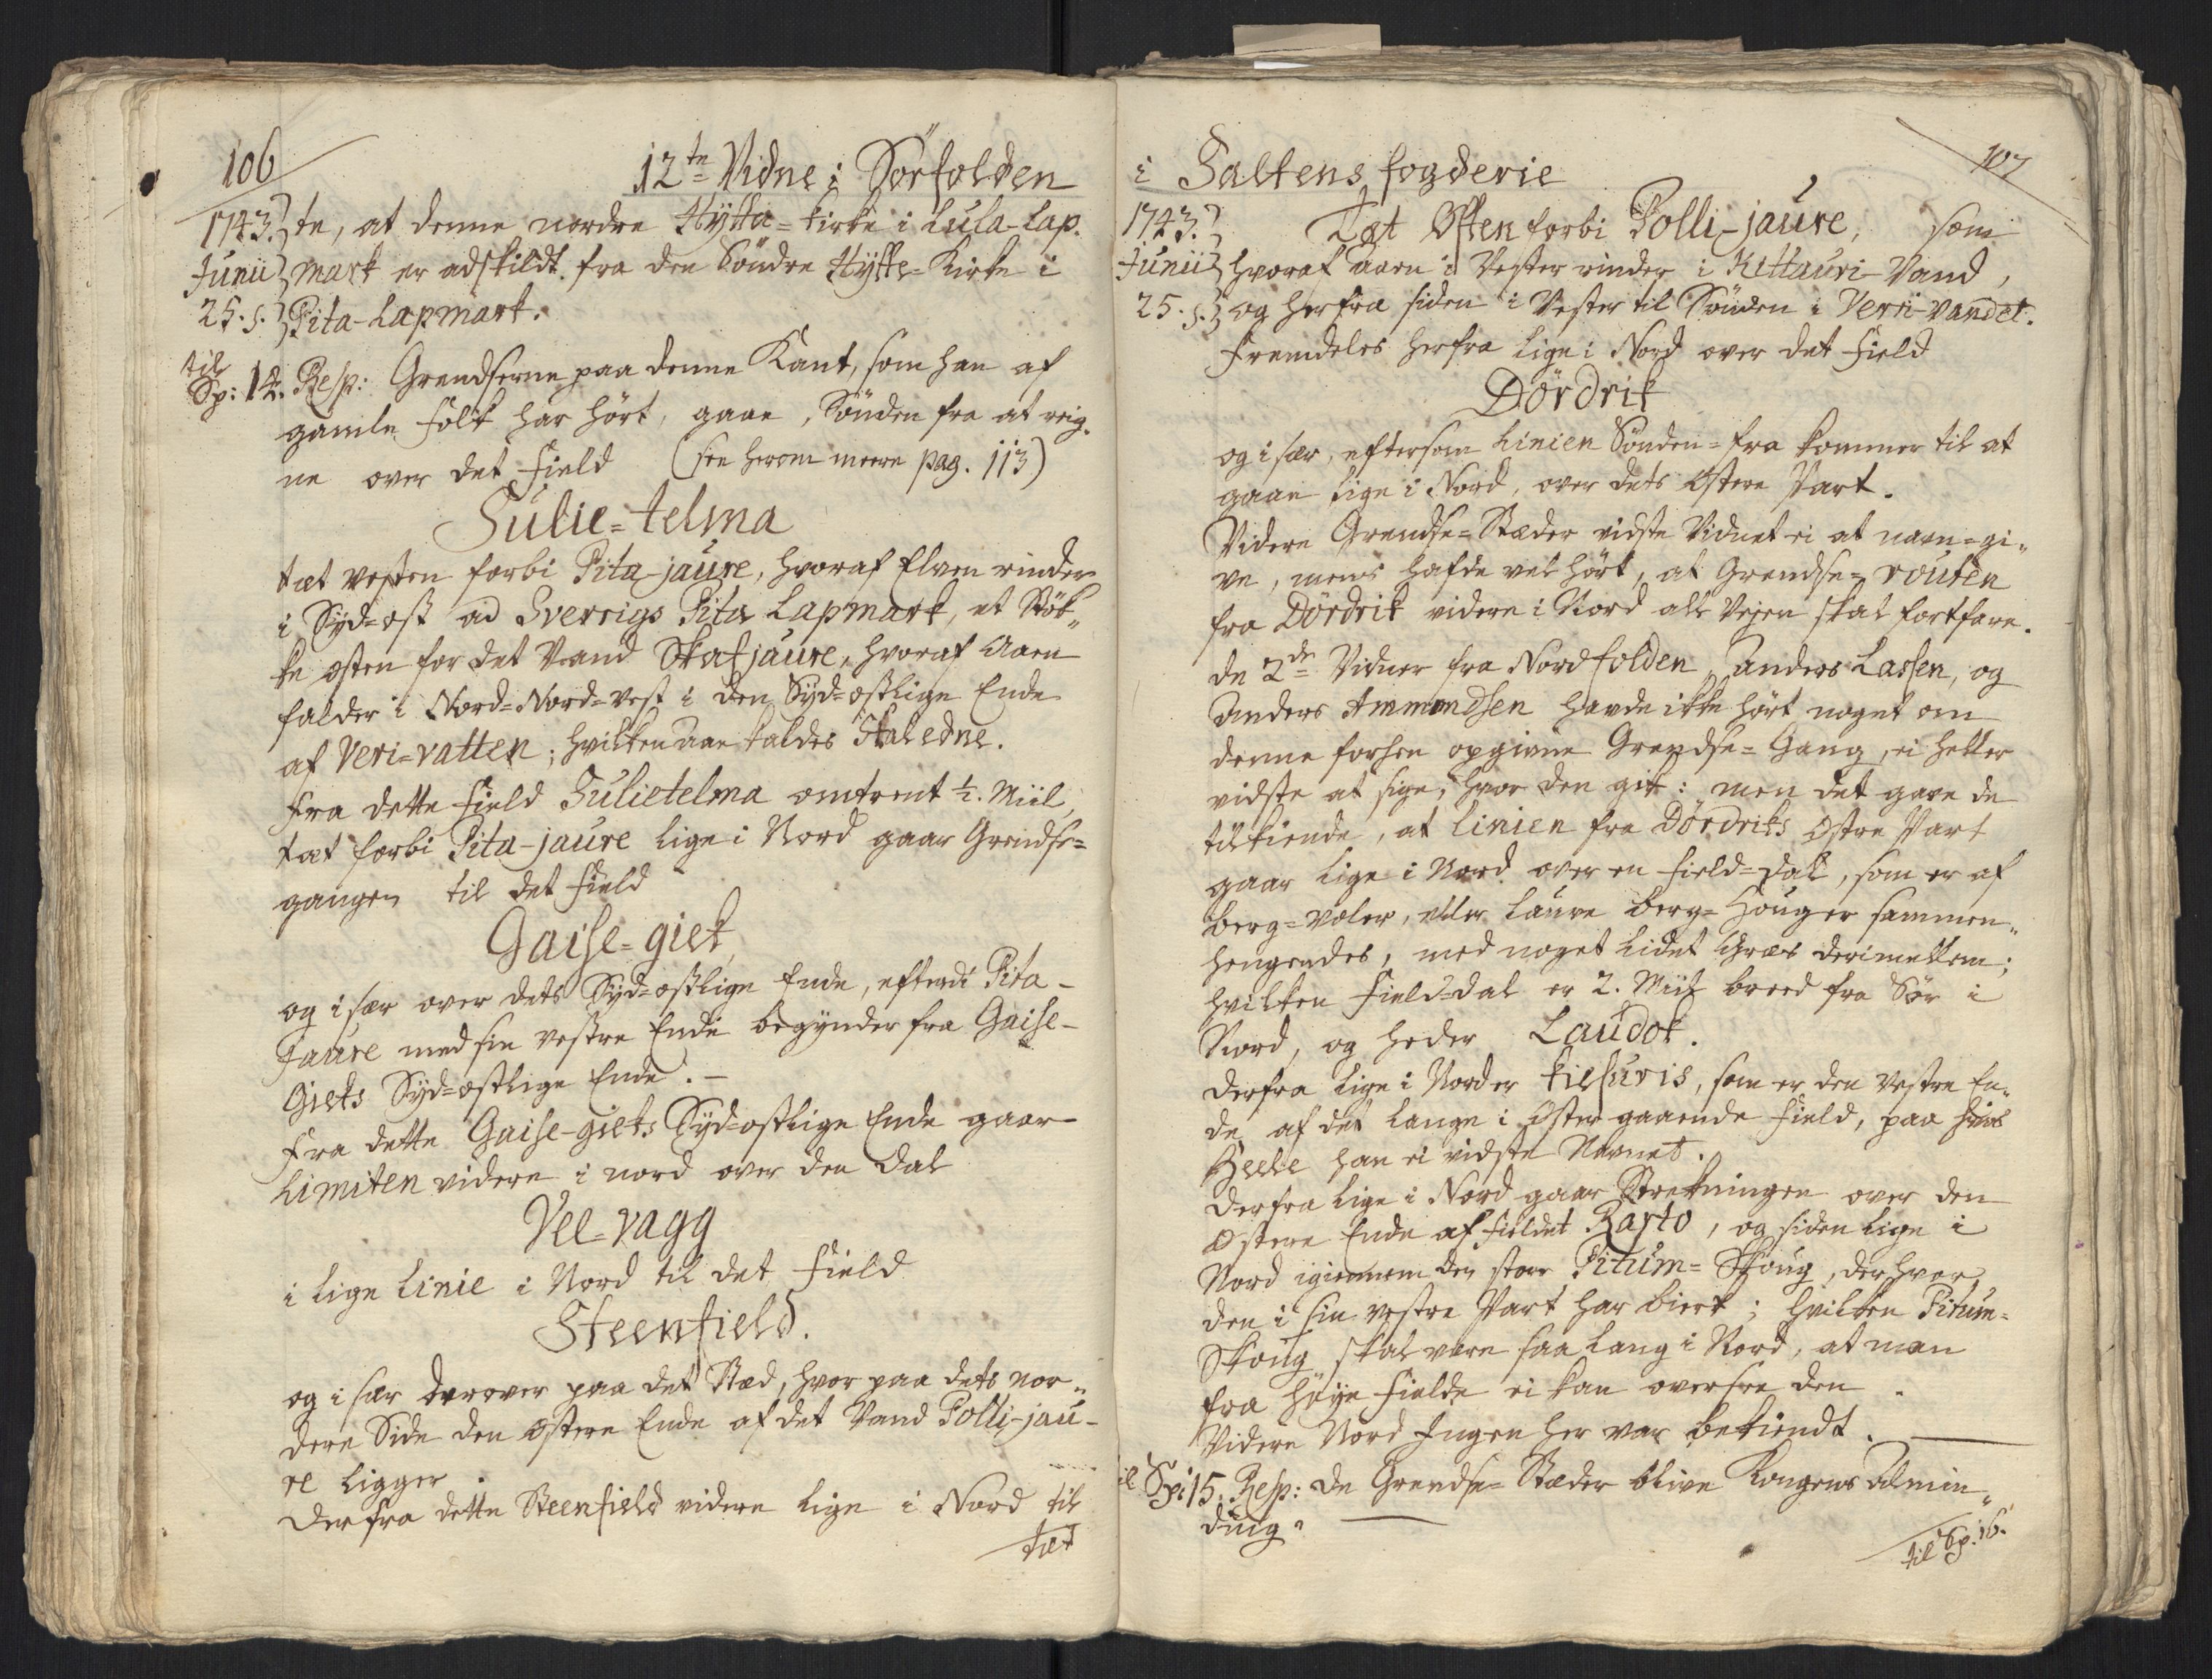 106
12te Vidne i Sörfolden
1743. te, at denne nordre Hytta-kirke i Lula-Lap-
Junii mark er adskildt fra den Söndre Hytte-Kirke i
25. s. Pita-Lapmark.
til Sp: 14. Resp: Grendserne paa denne Kant, som han af
gamle folk har hört, gaae, Sönden fra at reig-
ne over det field (see herom meere pag. 113)
Sulie-telma
tæt vesten forbi Pita-jaure, hvoraf Elven rinder
i Syd-ost ad Sverrigs Pita Lapmark, et Stök-
ke osten for det Vand Skatjaure, hvoraf Aaen
falder i Nord-Nord-vest i den Syd-ostlige Ende
af Veri-vatten; hvilken aae kaldes Staledne.
Fra dette field Sulietelma omtrent ½. Miil,
tæt forbi Pita-jaure lige i Nord gaar Grendse-
gangen til det field
Gaise-giet,
og i sær over dets Syd-ostlige Ende, efterdi Pita-
Jaure med sin vestre Ende begynder fra Gaise-
Giets Syd-ostlige Ende. —
Fra dette Gaise-giets Syd-ostlige Ende gaar
Limiten videre i nord over den Dal
Vel-vagg
i lige Linie i Nord til det field
Steenfield.
og i sær derover paa det Stæd, hvor paa dets nor-
dere Side den ostere Ende af det Vand Polli-jau-
re ligger.
Derfra dette Steenfield videre lige i Nord til
tæt
i Saltens fogderie
107
1743. Tæt Osten forbi Polli-jaure, som
Junii hvoraf aaen i Vester rinder i Kittauri-Vand,
25. s. og herfra siden i Vester til Sönden i Verri-vandet.
Fremdeles herfra lige i Nord over det field
Dördrik
og i sær, eftersom Linien Sönden-fra kommer til at
gaae lige i Nord, over dets ostere Part.
Videre Grendse-Stæder vidste Vidnet ei at navn-gi-
ve, mens hafde vel hört, at Grendse-routen
fra Dördrik videre i Nord alle Vejen skal fortfare.
de 2de Vidner fra Nordfolden, Anders Lassen, og
Anders Ammondsen havde ikke hört noget om
denne forhen opgivne Grendse-Gang, ei heller
vidste at sige, hvor den gik: men det gave de
tilkiende, at Linien fra Dördriks ostre Part
gaar lige i Nord over en field-dal, som er af
berg-voler, eller lauve berg-Houger sammen-
hengendes, med noget lidet Græs derimellem;
hvilken field-dal er 2. Miil breed fra Sör i
Nord, og heder Laudok.
Derfra lige i Nord er Kielsuris, som er den vestre En-
de af det lange i Oster gaaende field, paa hvis
Heele han ei vidste Navnet.
Derfra lige i Nord gaar Strekningen over den
ostere Ende af fieldet Rasto, og siden lige i
Nord igiennem den store Pitum-Skoug, der hvor
den i sin vestre Part har bierk; hvilken Pitum-
Skoug skal være saa lang i Nord, at man
fra höye fielde ei kan oversee den.
Videre Nord Ingen her var bekiendt. —
til Sp: 15. Resp: De Grendse-Stæder blive Kongens Almin-
ding. —
til Sp. 16.